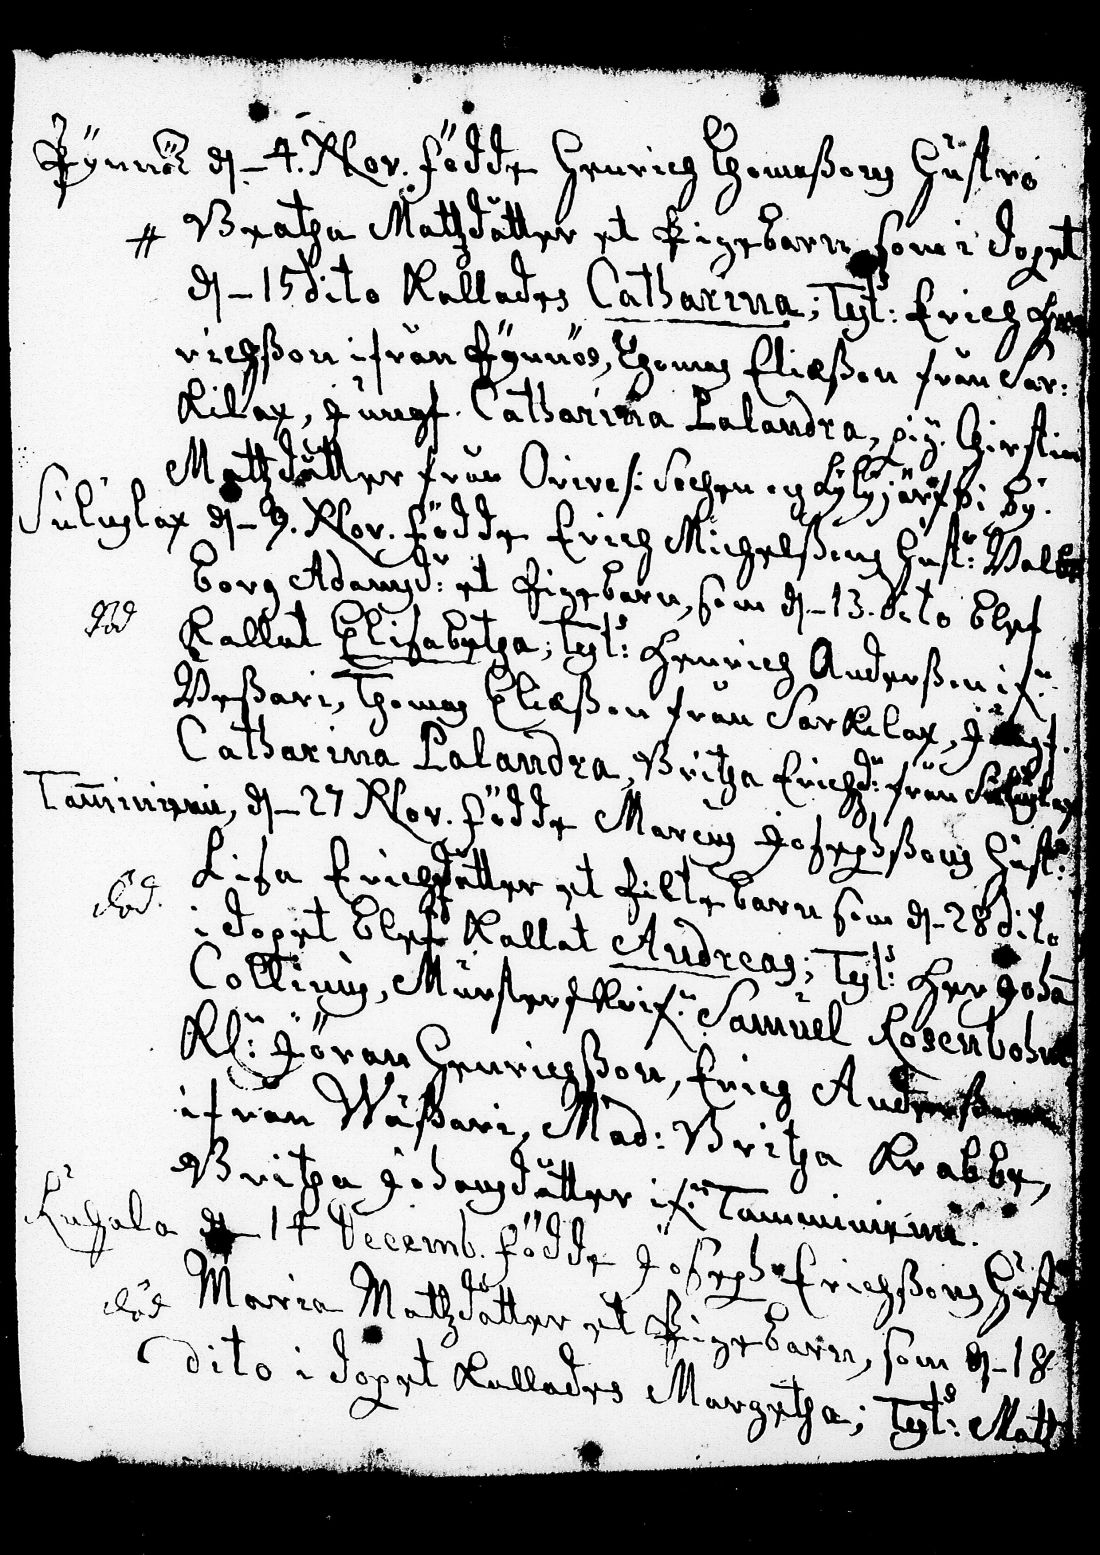 Pÿnnös d.–4. Nov. födde Henrich Thomaßons Hustrå
# Breatha Mattzdåtter et Pigebarn, som i dopet
d.–15 dito Kallades Catharina; Tyt:s Erich Hen
richßon ifrån Pÿnnös, Thomas Eliæßon från Sar:
kilax, Jungf. Catharina Lalandra, pig. Chirstin
Mattzdåtter från Orivesi Sochn og Lylyjärfvi by.
Suluslax d.–9. Nov. födde Erich Michelßons Hust: Valbe
borg Adamsd: et Pigebarn, som d.–13. dito blef
död Kallat Elisabetha; Tyt:s Henrich Anderßon if:n
Veßari, Thomas Eliæßon från Sarkilax, Jungf.
Catharina Lalandra, Britha Erichzd: från Suluslax
Tamminiemi, d.–27 Nov. födde Marcus Josephßons Hust:
Lisa Erichzdåtter et Piltebarn som d.–28 dito
död. i dopet blef Kallat Andreas; Tyt:s Her Johan
Collinus, Munsterskrif: Samuel Rosenbohm
Kl: Jöran Henrichßon, Erich Anderßon
ifrån Wäßari, Mad: Britha Krabbe,
Britha Johansdåtter if:n Tamminiemi.
Kuhala d.–14 Decemb. födde Joseph Erichßons Hust:
död Maria Mattzdåtter et Pigebarn, som d.–18
dito i dopet Kallades Margetha; Tyt:s Matt